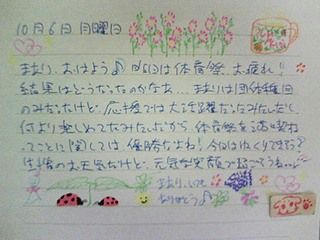 10月6日 月曜日
まより、おはよう♪ 昨日は体育祭お疲れ!
結果はどうなったのかなぁ… まよりは団体種目
のみだったけど、応援では大活躍だったみたいだし
何より楽しめてたみたいだから、体育祭を満喫
ってことに関しては優勝だよね! 今日はゆっくりできる?
お天気だけど、元気な笑顔で
まより、いつも
ありがとう♪